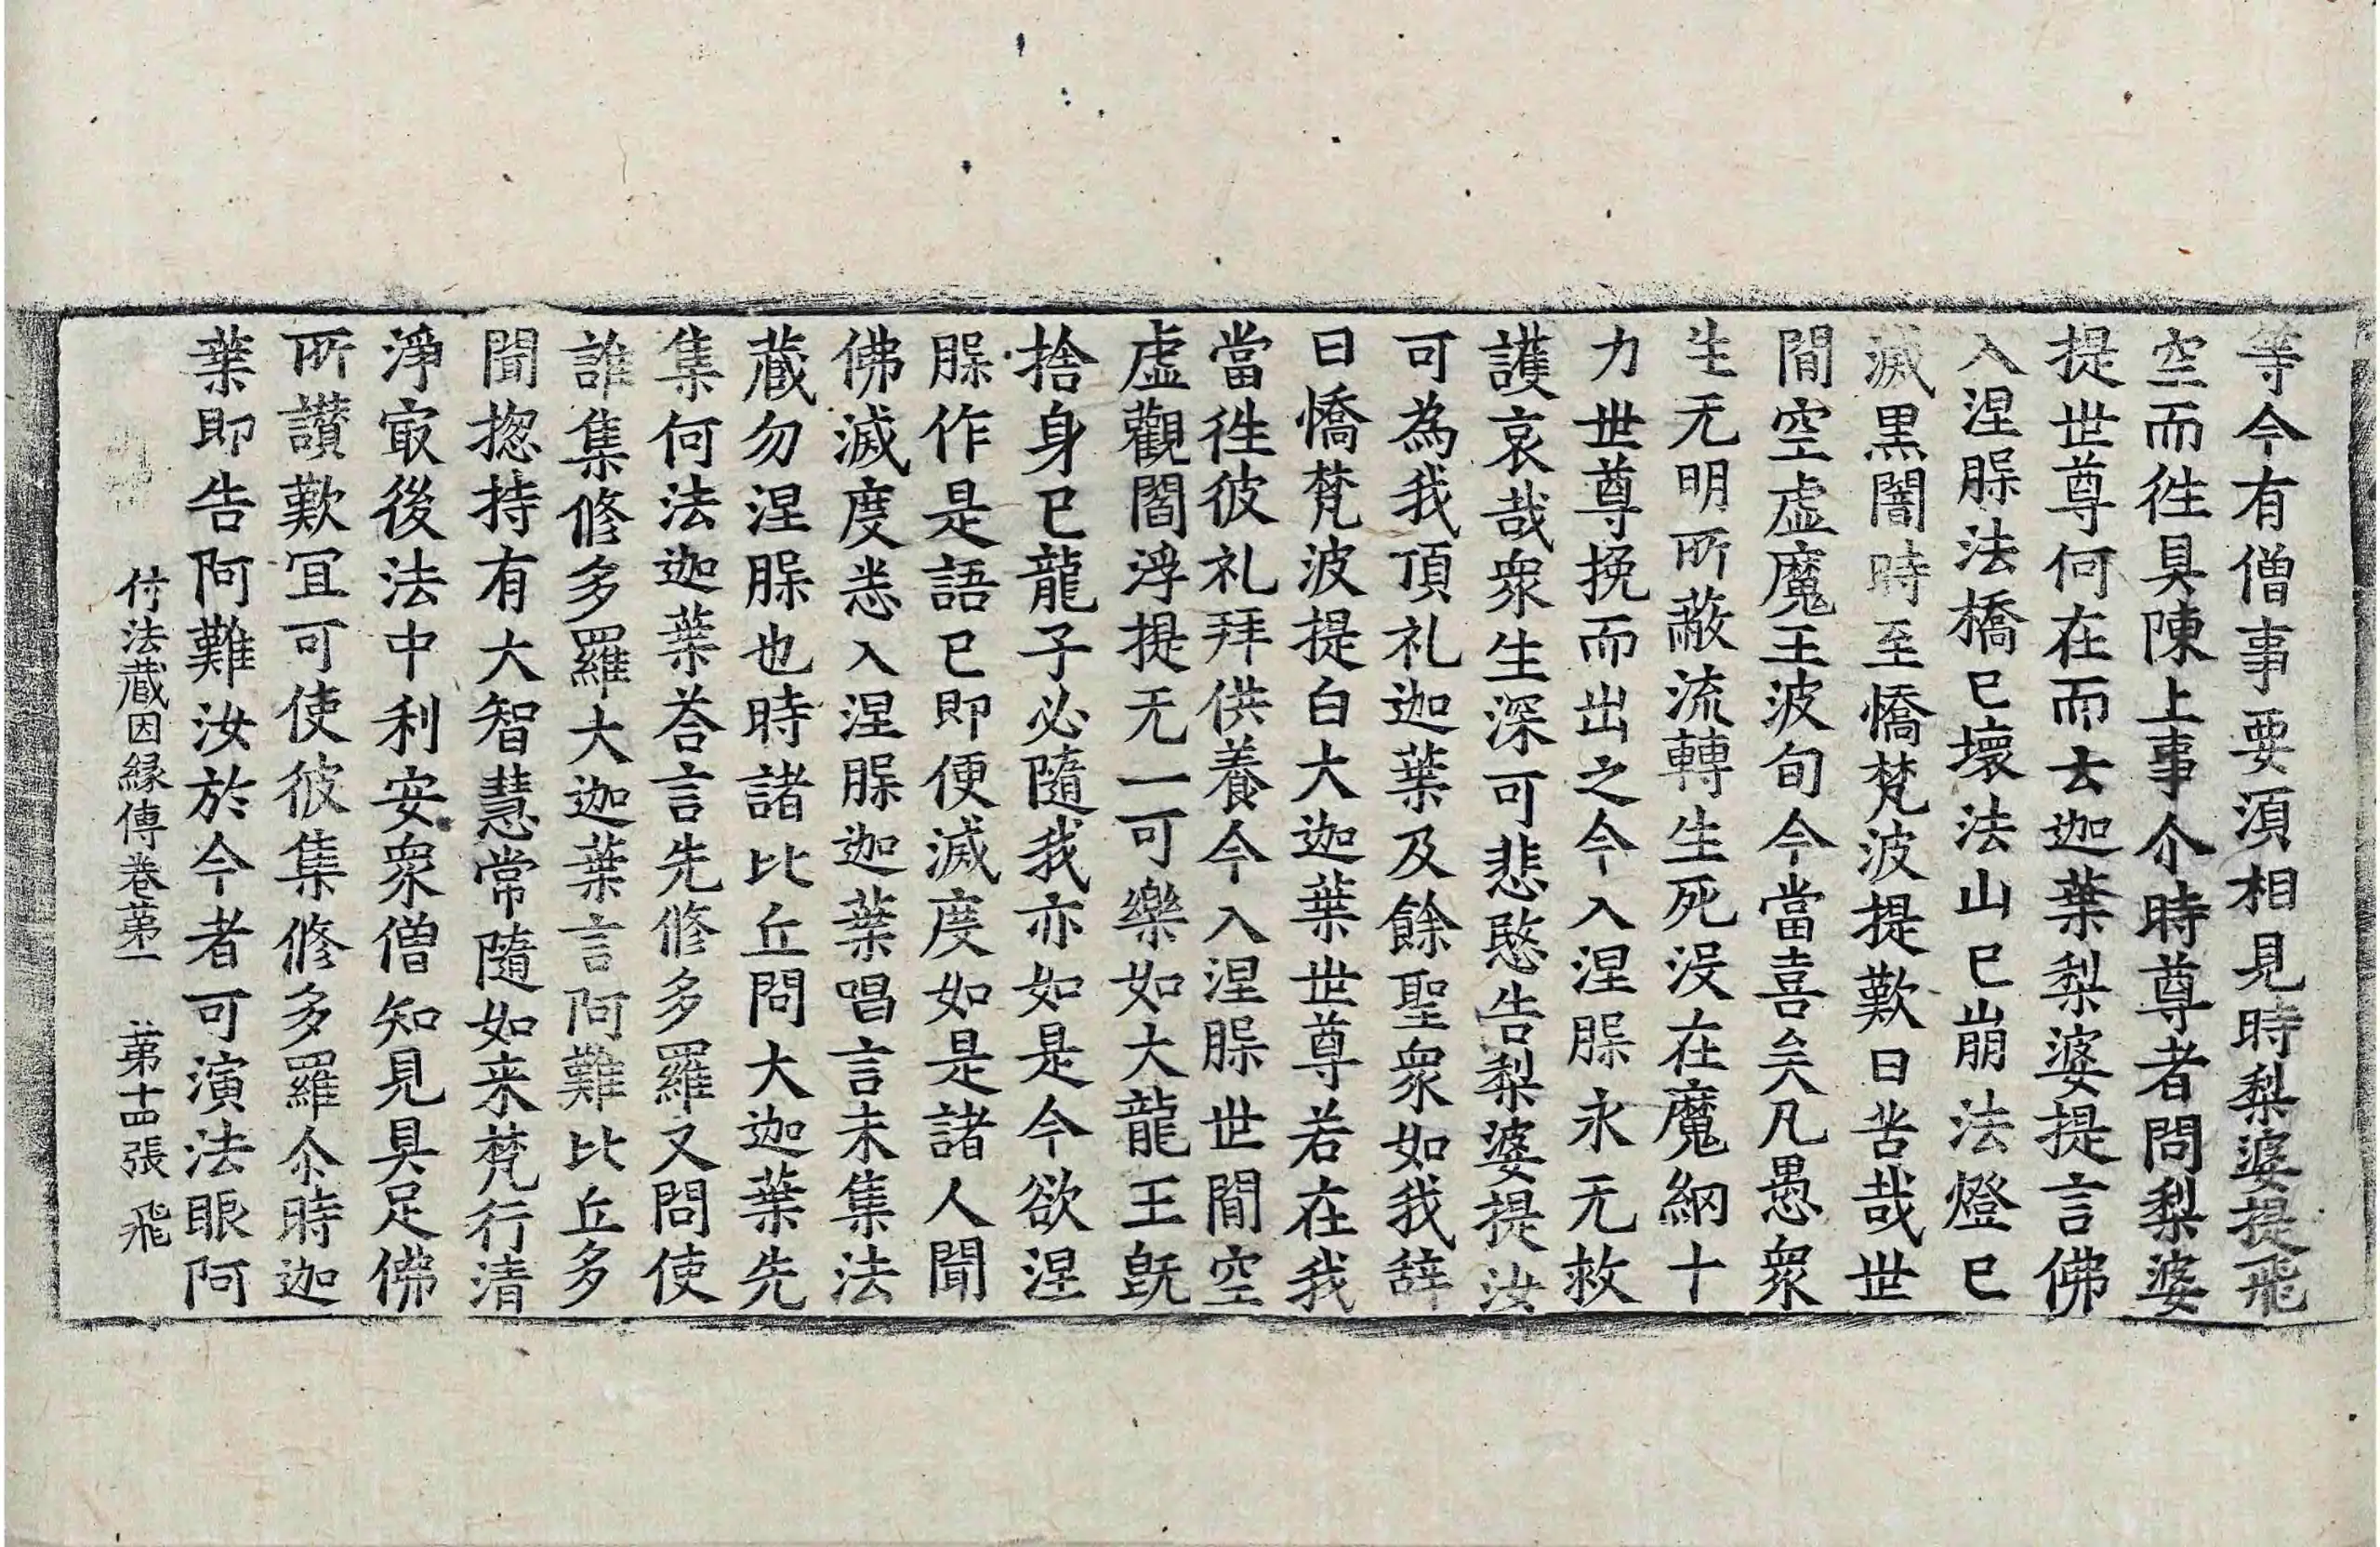 等今有僧事要湏相見時梨婆提飛
空而徃具陳上事尒時尊者問梨婆
提世尊何在而去迦葉梨婆提言佛
入涅𣬆法橋已壞法山已崩法燈已
滅黒闇時至憍梵波提歎曰苦哉世
間空虛魔王波旬今當喜矣凡愚衆
生无明所蔽流轉生死没在魔網十
力世尊挽而出之今入涅𣬆永无救
護哀哉衆生深可悲愍告梨婆提汝
可為我頂礼迦葉及餘聖衆如我辞
曰憍梵波提白大迦葉世尊若在我
當徃彼礼拜供養今入涅𣬆世間空
虛觀閻浮提无一可樂如大龍王旣
捨身已龍子必隨我亦如是今欲涅
𣬆作是語已即便滅度如是諸人聞
佛滅度悉入涅𣬆迦葉唱言未集法
蔵勿涅𣬆也時諸比丘問大迦葉先
集何法迦葉荅言先修多羅又問使
誰集修多羅大迦葉言阿難比丘多
聞揔持有大智慧常隨如来梵行清
淨㝡後法中利安衆僧知見具足佛
所讃歎冝可使彼集修多羅尒時迦
葉即告阿難汝於今者可演法眼阿
付法蔵因縁傳巻苐一 苐十四張 飛